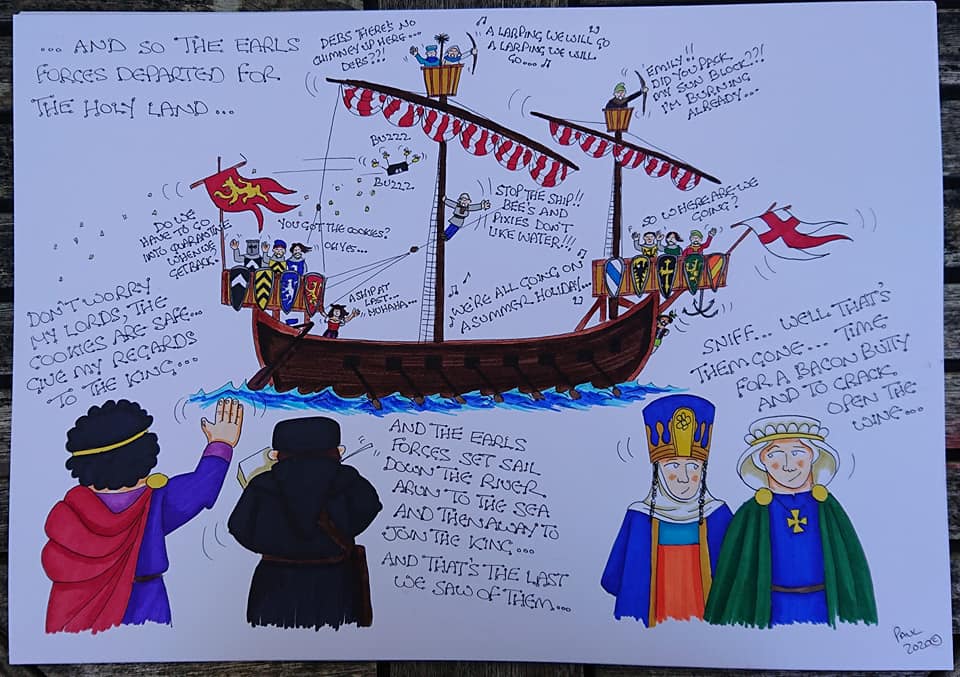 ... AND SO THE EARLS
FORCES DEPARTED FOR
THE HOLY LAND ...
DEBS THERE'S NO
CHIMNEY UP HERE...
DEBS??!
A LARPING WE WILL GO
A LARPING WE WILL
GO...
EMILY!!
DID YOU PACK
MY SUN BLOCK??!
I'M BURNING
ALREADY...
BUZZZ
BUZZZ
STOP THE SHIP!!
BEE'S AND
PIXIES DON'T
LIKE WATER!!!
SO WHERE ARE WE
GOING?
DO WE
HAVE TO GO
INTO QUARANTINE
WHEN WE
GET BACK?
YOU GOT THE COOKIES?
OH YES...
A SHIP AT
LAST...
MUHAHA...
WE'RE ALL GOING ON
A SUMMER HOLIDAY...
DON'T WORRY
MY LORDS, THE
COOKIES ARE SAFE...
GIVE MY REGARDS
TO THE KING...
SNIFF... WELL THAT'S
THEM GONE... TIME
FOR A BACON BUTTY
AND TO CRACK
OPEN THE
WINE...
AND THE EARLS
FORCES SET SAIL
DOWN THE RIVER
ARUN TO THE SEA
AND THEN AWAY TO
JOIN THE KING...
AND THAT'S THE LAST
WE SAW OF THEM...
PAUL
2020©